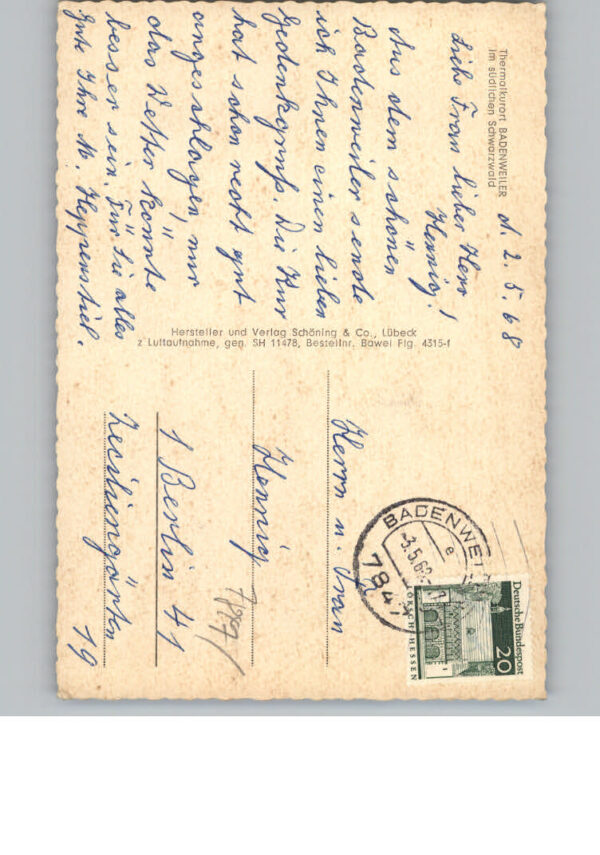 Thermalkurort BADENWEILER
im südlichen Schwarzwald
d. 2.5.68
Liebe Frau lieber Herr
Hennig!
Aus dem schönen
Badenweiler sende
ich Ihnen einen lieben
Gedenkgruß. Die Kur
hat schon recht gut
angeschlagen, nur
das Wetter könnte
besser sein. Für Sie alles
Gute Ihre M. Heppenstiel.
Hersteller und Verlag Schöning & Co., Lübeck
z Luftaufnahme, gen. SH 11478, Bestellnr. Bawei Flg. 4315-f
Herrn u. Frau
Hennig
1 Berlin 41
Zeciliengärten
19
BADENWEI
3.5.68
e
7847
Deutsche Bundespost
20
LORSCH/HESSEN